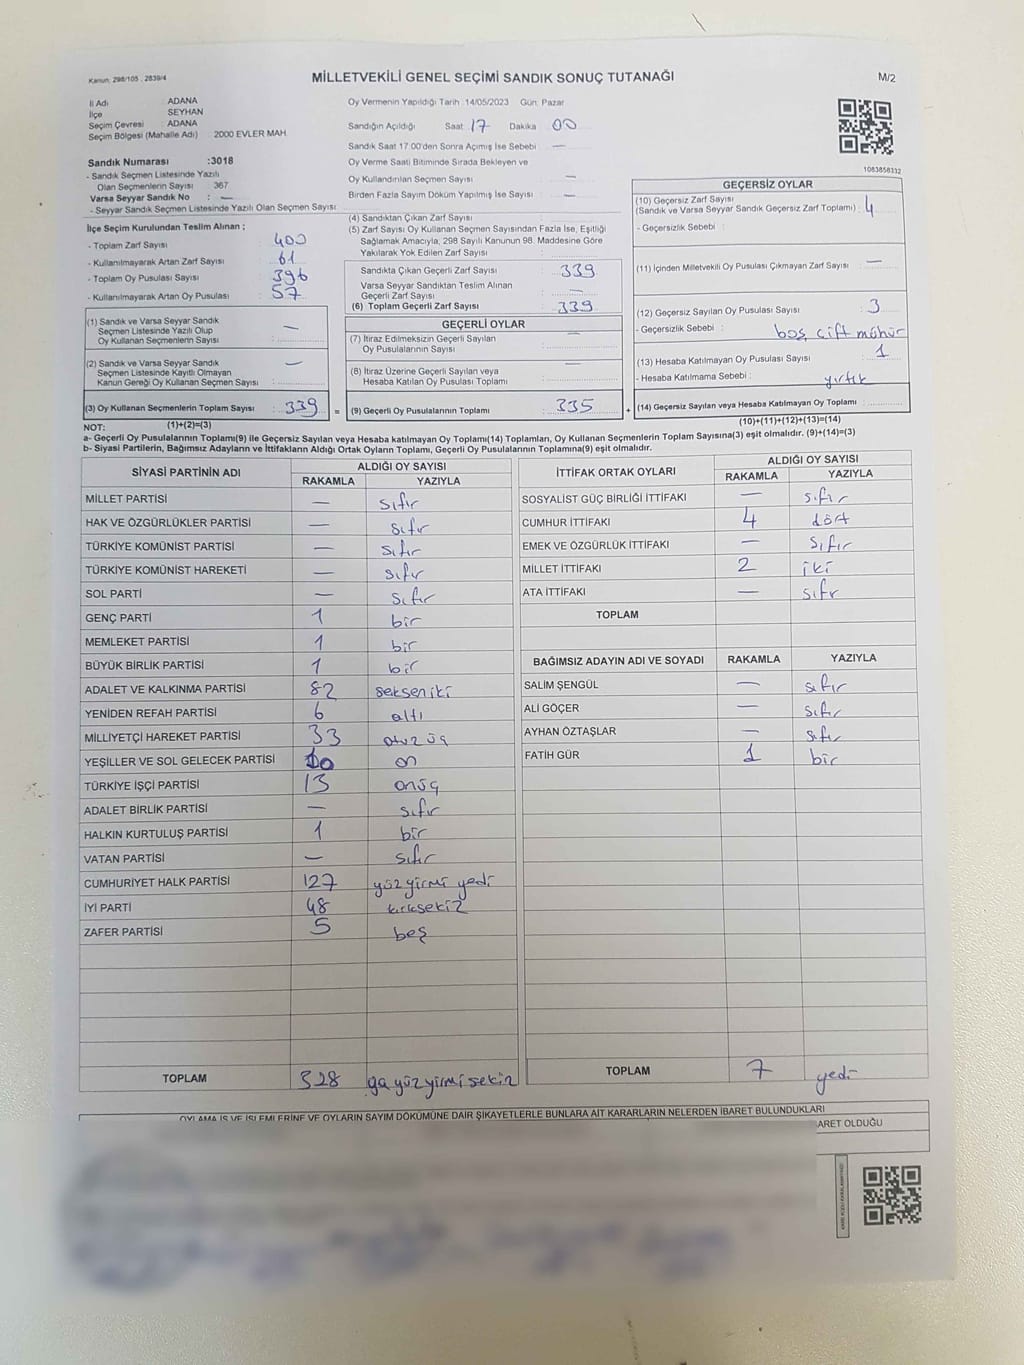 Kanun: 298/105 , 2839/4
MİLLETVEKİLİ GENEL SEÇİMİ SANDIK SONUÇ TUTANAĞI
M/2
İl Adı : ADANA
İlçe : SEYHAN
Seçim Çevresi : ADANA
Seçim Bölgesi (Mahalle Adı) : 2000 EVLER MAH
Sandık Numarası :3018
- Sandık Seçmen Listesinde Yazılı
Olan Seçmenlerin Sayısı : 367
Varsa Seyyar Sandık No : —
- Seyyar Sandık Seçmen Listesinde Yazılı Olan Seçmen Sayısı :
Oy Vermenin Yapıldığı Tarih :14/05/2023 Gün: Pazar
Sandığın Açıldığı Saat : 17 Dakika : 00
Sandık Saat 17.00'den Sonra Açılmış İse Sebebi : —
Oy Verme Saati Bitiminde Sırada Bekleyen ve
Oy Kullandırılan Seçmen Sayısı : —
Birden Fazla Sayım Döküm Yapılmış İse Sayısı : —
1083858332
İlçe Seçim Kurulundan Teslim Alınan ;
- Toplam Zarf Sayısı : 400
- Kullanılmayarak Artan Zarf Sayısı : 61
- Toplam Oy Pusulası Sayısı : 396
- Kullanılmayarak Artan Oy Pusulası : 57
(1) Sandık ve Varsa Seyyar Sandık
Seçmen Listesinde Yazılı Olup
Oy Kullanan Seçmenlerin Sayısı : —
(2) Sandık ve Varsa Seyyar Sandık
Seçmen Listesinde Kayıtlı Olmayan
Kanun Gereği Oy Kullanan Seçmen Sayısı : —
(3) Oy Kullanan Seçmenlerin Toplam Sayısı : 339
(4) Sandıktan Çıkan Zarf Sayısı :
(5) Zarf Sayısı Oy Kullanan Seçmen Sayısından Fazla İse, Eşitliği
Sağlamak Amacıyla, 298 Sayılı Kanunun 98. Maddesine Göre
Yakılarak Yok Edilen Zarf Sayısı :
Sandıkta Çıkan Geçerli Zarf Sayısı : 339
Varsa Seyyar Sandıktan Teslim Alınan
Geçerli Zarf Sayısı : —
(6) Toplam Geçerli Zarf Sayısı : 339
GEÇERLİ OYLAR
(7) İtiraz Edilmeksizin Geçerli Sayılan
Oy Pusulalarının Sayısı : —
(8) İtiraz Üzerine Geçerli Sayılan veya
Hesaba Katılan Oy Pusulası Toplamı : —
= (9) Geçerli Oy Pusulalarının Toplamı : 335
GEÇERSİZ OYLAR
(10) Geçersiz Zarf Sayısı
(Sandık ve Varsa Seyyar Sandık Geçersiz Zarf Toplamı) : 4
- Geçersizlik Sebebi :
(11) İçinden Milletvekili Oy Pusulası Çıkmayan Zarf Sayısı : —
(12) Geçersiz Sayılan Oy Pusulası Sayısı : 3
- Geçersizlik Sebebi : boş çift mühür
(13) Hesaba Katılmayan Oy Pusulası Sayısı : 1
- Hesaba Katılmama Sebebi : yırtık
+ (14) Geçersiz Sayılan veya Hesaba Katılmayan Oy Toplamı :
NOT: (1)+(2)=(3)
(10)+(11)+(12)+(13)=(14)
a- Geçerli Oy Pusulalarının Toplamı(9) ile Geçersiz Sayılan veya Hesaba katılmayan Oy Toplamı(14) Toplamları, Oy Kullanan Seçmenlerin Toplam Sayısına(3) eşit olmalıdır. (9)+(14)=(3)
b- Siyasi Partilerin, Bağımsız Adayların ve İttifakların Aldığı Ortak Oyların Toplamı, Geçerli Oy Pusulalarının Toplamına(9) eşit olmalıdır.
SİYASİ PARTİNİN ADI ALDIĞI OY SAYISI
RAKAMLA YAZIYLA
MİLLET PARTİSİ — sıfır
HAK VE ÖZGÜRLÜKLER PARTİSİ — sıfır
TÜRKİYE KOMÜNİST PARTİSİ — sıfır
TÜRKİYE KOMÜNİST HAREKETİ — sıfır
SOL PARTİ — sıfır
GENÇ PARTİ 1 bir
MEMLEKET PARTİSİ 1 bir
BÜYÜK BİRLİK PARTİSİ 1 bir
ADALET VE KALKINMA PARTİSİ 82 sekseniki
YENİDEN REFAH PARTİSİ 6 altı
MİLLİYETÇİ HAREKET PARTİSİ 33 otuzüç
YEŞİLLER VE SOL GELECEK PARTİSİ 10 on
TÜRKİYE İŞÇİ PARTİSİ 13 onüç
ADALET BİRLİK PARTİSİ — sıfır
HALKIN KURTULUŞ PARTİSİ 1 bir
VATAN PARTİSİ — sıfır
CUMHURİYET HALK PARTİSİ 127 yüzyirmi yedi
İYİ PARTİ 48 kırksekiz
ZAFER PARTİSİ 5 beş
TOPLAM 328 üçyüzyirmisekiz
İTTİFAK ORTAK OYLARI ALDIĞI OY SAYISI
RAKAMLA YAZIYLA
SOSYALİST GÜÇ BİRLİĞİ İTTİFAKI — sıfır
CUMHUR İTTİFAKI 4 dört
EMEK VE ÖZGÜRLÜK İTTİFAKI — sıfır
MİLLET İTTİFAKI 2 iki
ATA İTTİFAKI — sıfır
TOPLAM
BAĞIMSIZ ADAYIN ADI VE SOYADI RAKAMLA YAZIYLA
SALİM ŞENGÜL — sıfır
ALİ GÖÇER — sıfır
AYHAN ÖZTAŞLAR — sıfır
FATİH GÜR 1 bir
TOPLAM 7 yedi
OYLAMA İŞ VE İŞLEMLERİNE VE OYLARIN SAYIM DÖKÜMÜNE DAİR ŞİKAYETLERLE BUNLARA AİT KARARLARIN NELERDEN İBARET BULUNDUKLARI
BARET OLDUĞU